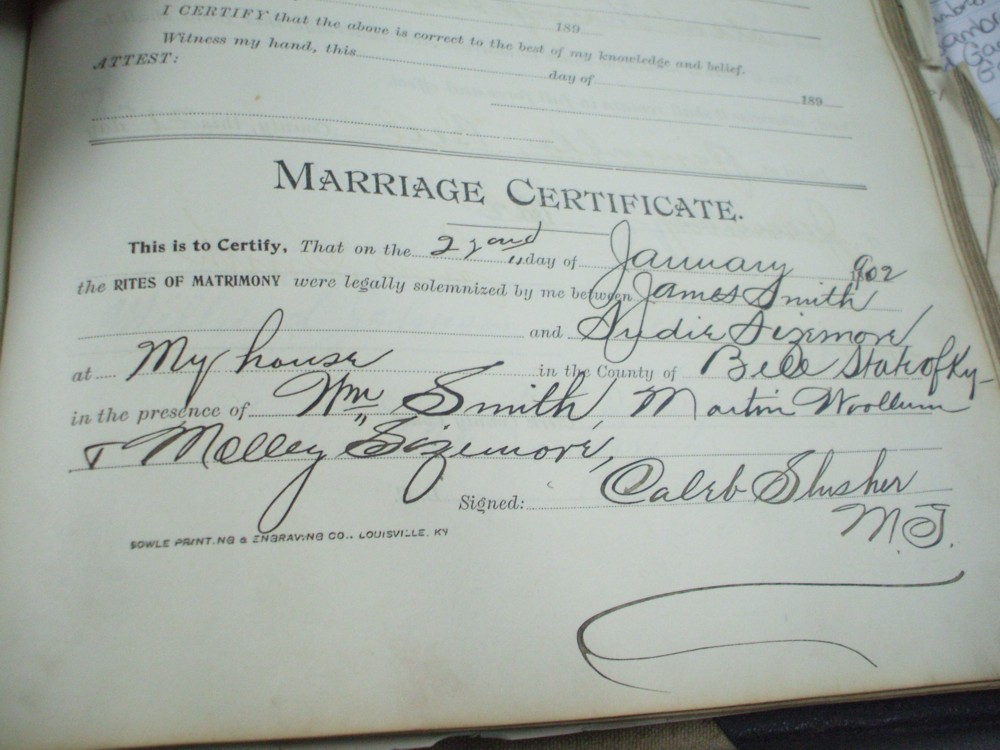 I CERTIFY that the above is correct to the best of my knowledge and belief.
Witness my hand, this day of 189
ATTEST:
189
MARRIAGE CERTIFICATE.
This is to Certify, That on the day of January 1902
the RITES OF MATRIMONY were legally solemnized by me between James Smith
and Sizemore
at My house in the County of Bell State of Ky-
in the presence of Wm Smith, Martin Woollum
+ Molley Sizemore,
Signed: Caleb Slusher
M.G.
BOWLE PRINTING & ENGRAVING CO., LOUISVILLE, KY